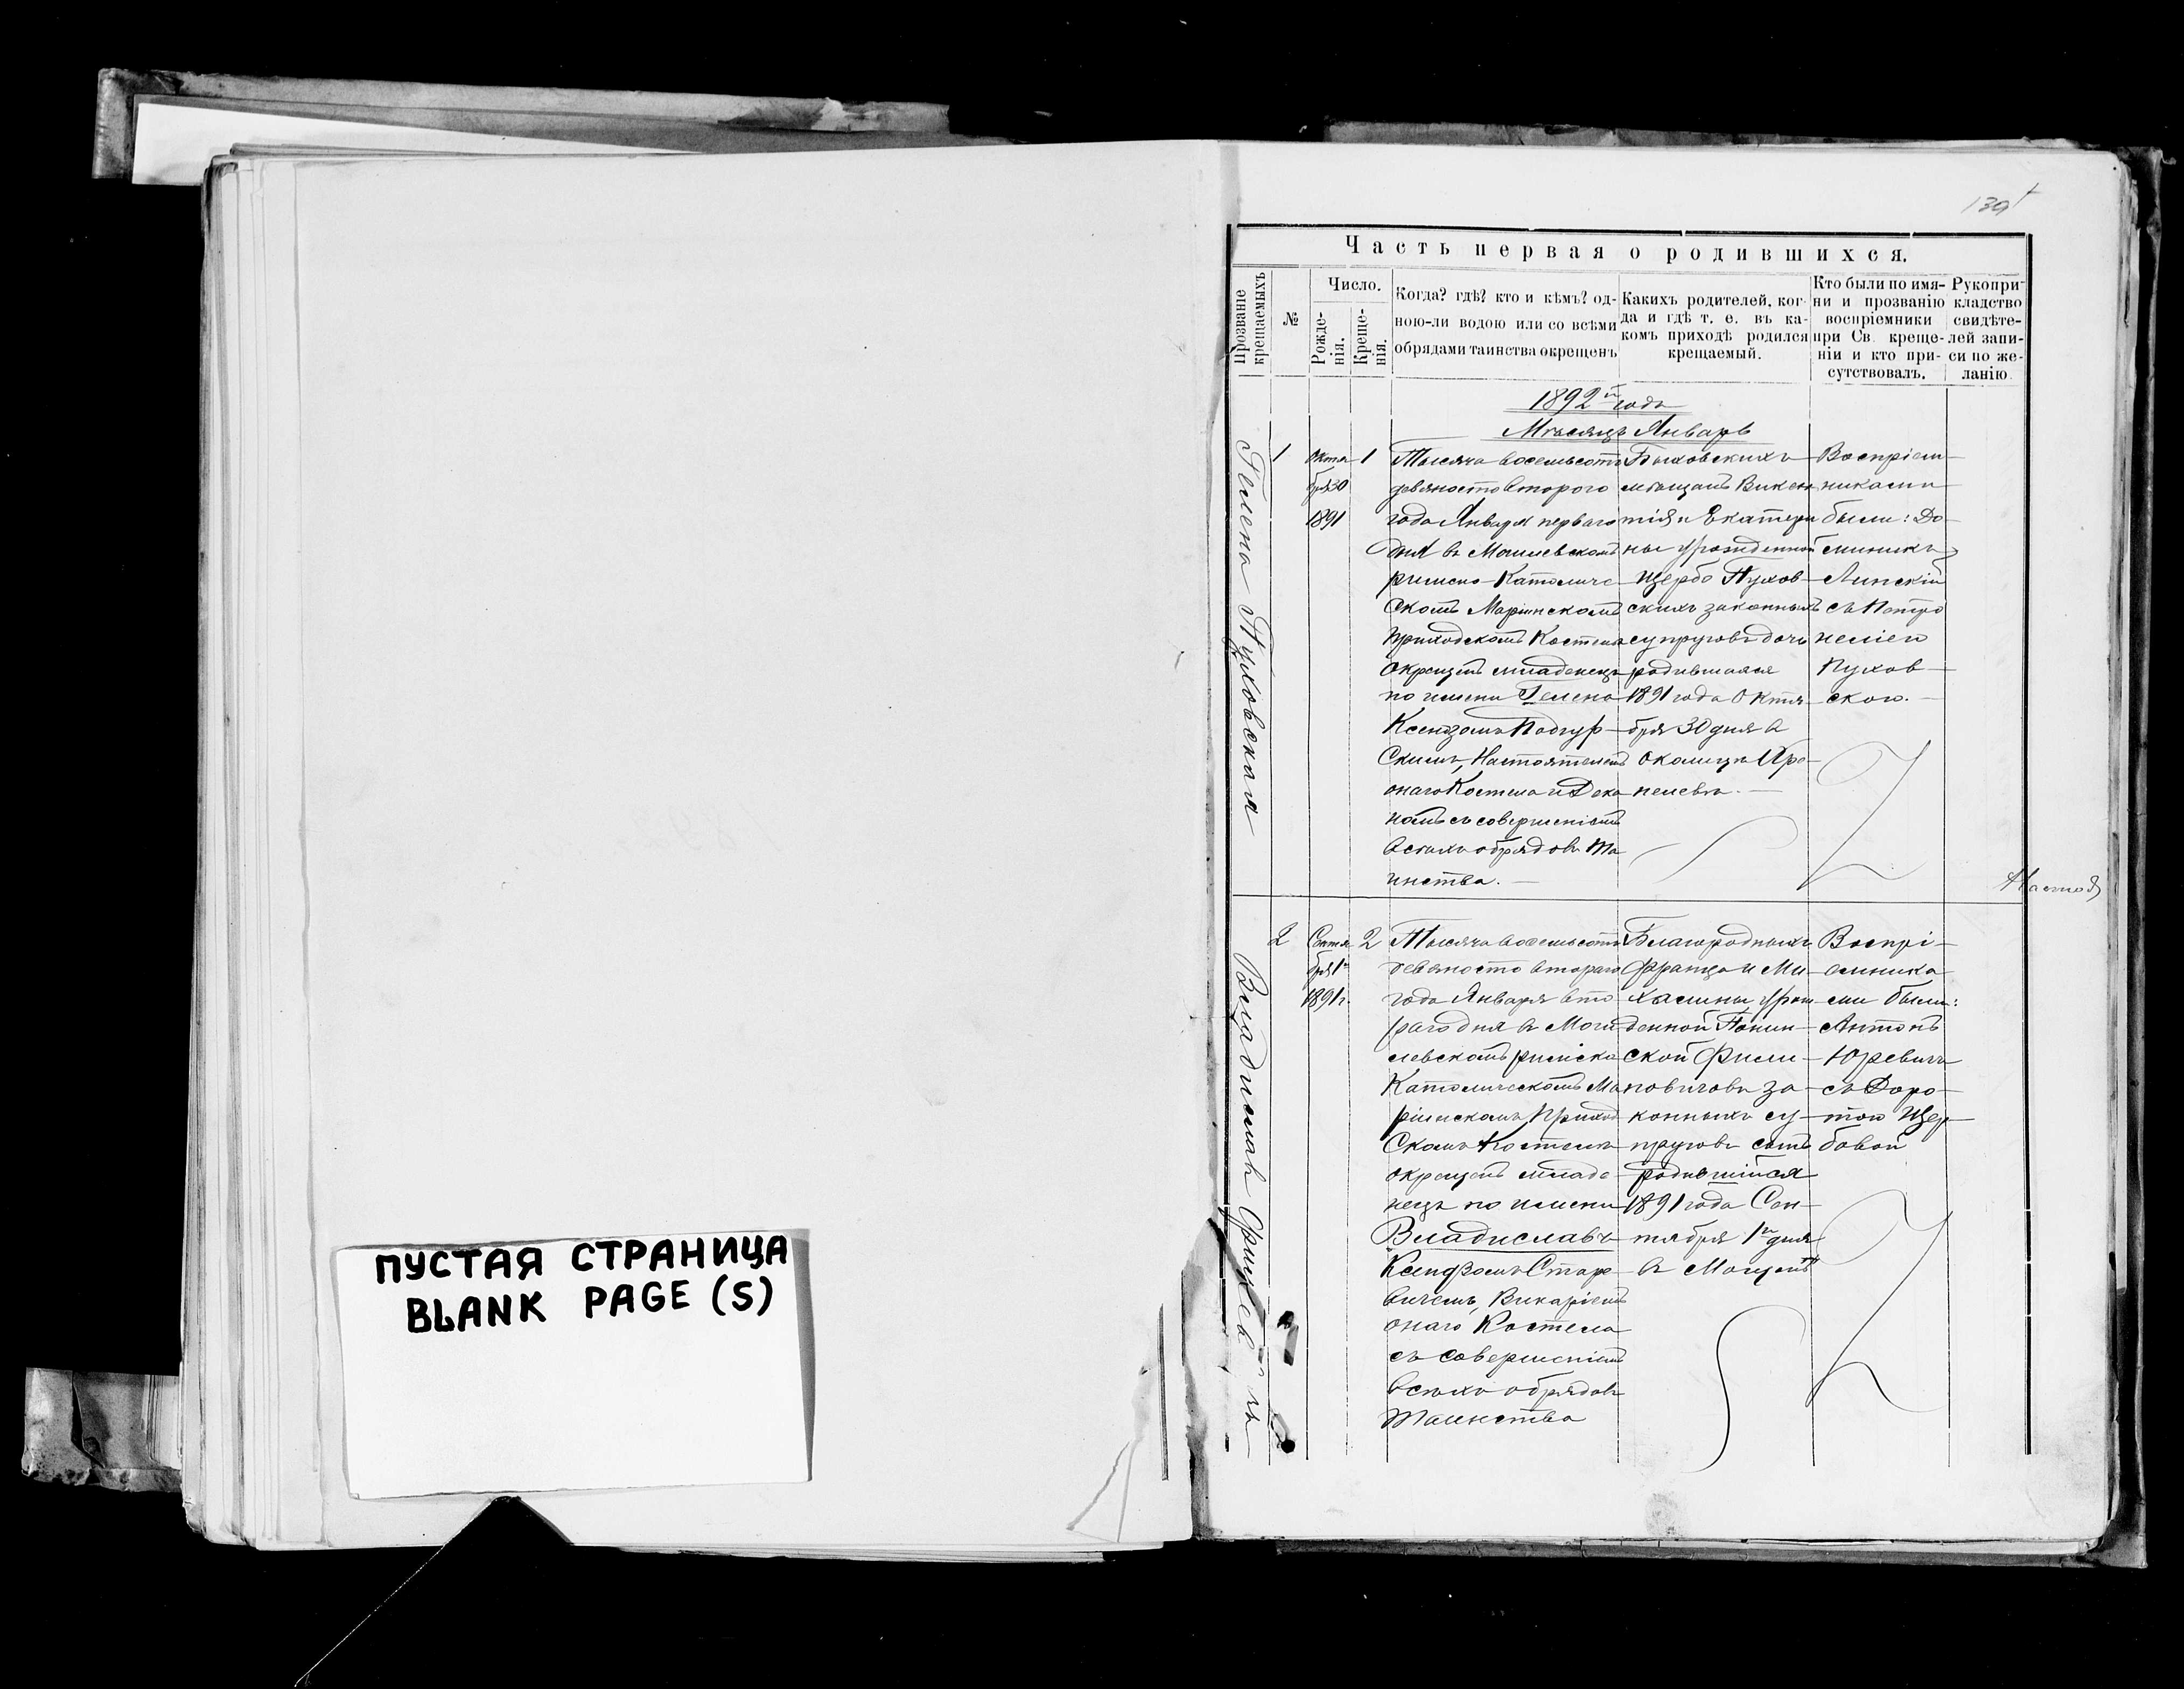 ПУСТАЯ СТРАНИЦА
BLANK PAGE (S)
139
Часть первая о родившихся.
Прозваніе
крещаемыхъ
№
Число.
Рожде-
нія.
Креще-
нія.
Когда? гдѣ? кто и кѣмъ? од-
ною-ли водою или со всѣми
обрядами таинства окрещенъ
Какихъ родителей, ког-
да и гдѣ т. е. въ ка-
комъ приходѣ родился
крещаемый.
Кто были по имя-
ни и прозванію
воспріемники
при Св. креще-
ніи и кто при-
сутствовалъ.
Рукопри-
кладство
свидѣте-
лей запи-
си по же-
ланію
1892й года
Мѣсяцъ Январь
Гелена Пуховская
1
Октя
бря 30
1891
1
Тысяча восемьсотъ
девяносто второго
года Января перваго
дня въ Могилевскомъ
римско-Католиче
скомъ Маріинскомъ
Приходскомъ Костелѣ
окрещенъ младенецъ
по имени Гелена
Ксендзомъ Подгур
скимъ, Настоятелемъ
онаго Костела и Дека
номъ съ совершеніемъ
всѣхъ обрядовъ Та
инства.
Быховскихъ
мѣщанъ Викен
тія и Екатери
ны урожденной
Щербо Пухов
скихъ законныхъ
супруговъ дочь
родившаяся
1891 года Октя
бря 30 дня въ
околицѣ
Воспріем
никами
были: До
миникъ
Липскій
съ Петро
нелією
Пухов
скою.
Владиславъ
2
Сентя
бря 1го
1891 г.
2
Тысяча восемьсотъ
девяносто втораго
года Января вто
раго дня въ Моги
левскомъ римско
Католическомъ Ма
ріинскомъ Приход
скомъ Костелѣ
окрещенъ младе
нецъ по имени
Владиславъ
Ксендзомъ Старе
вичемъ, Викаріемъ
онаго Костела
съ совершеніемъ
всѣхъ обрядовъ
таинства
Благородныхъ
Франца и Ми
халины урож
денной
ской Фили
повичовъ за
конныхъ су
пруговъ сынъ
родившійся
1891 года Сен
тября 1го дня
въ
Воспрі
емника
ми были:
Антонъ
Юревичъ
съ Доро
тою Щер
бовой